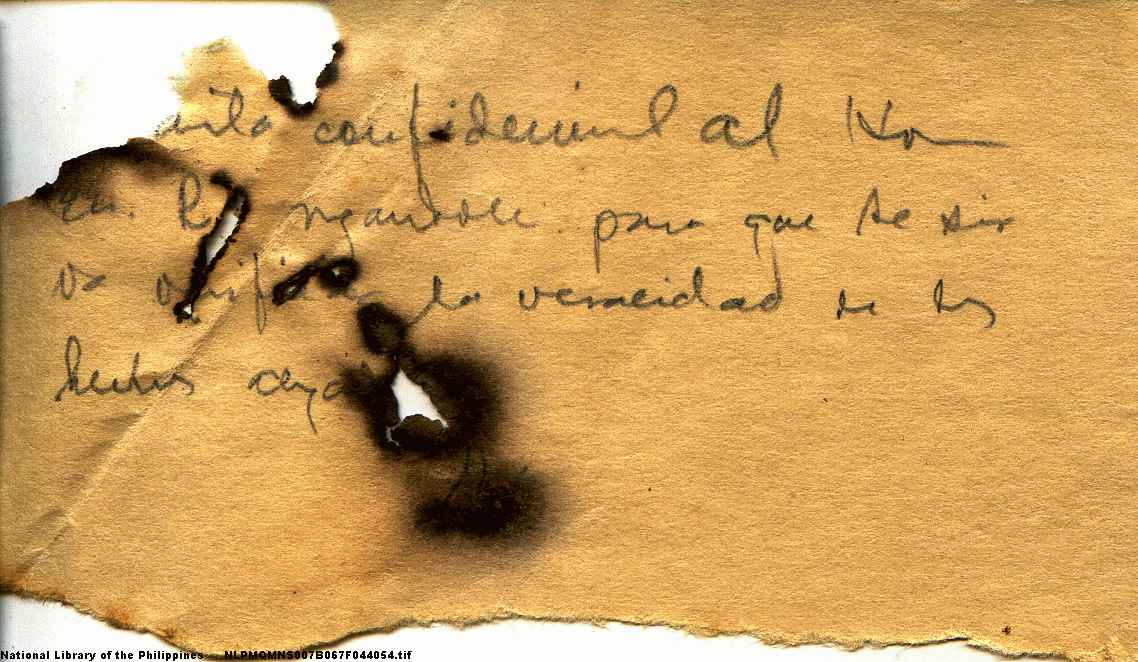 confidencial al Hon
para que se sir
va verificar la veracidad de los
hechos
National Library of the Philippines NLPMQMNS007B067F044054.tif